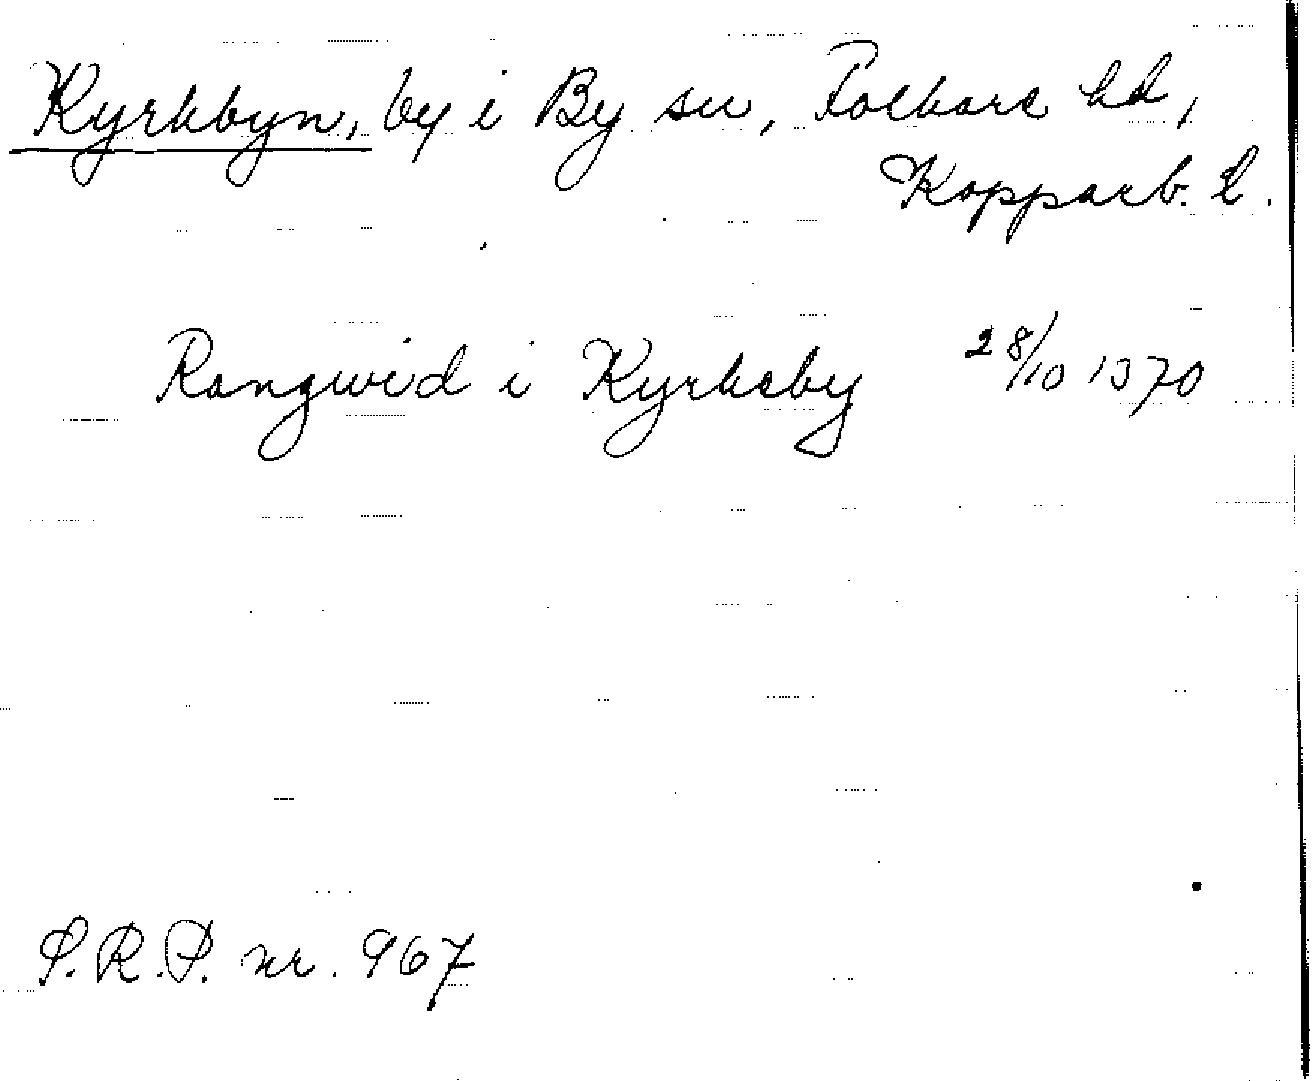 Kyrkbyn, by i By sn, Folkare hd,
Kopparb. l.
Rangwid i Kyrkeby 28/10 1370
S.R.P. nr. 967